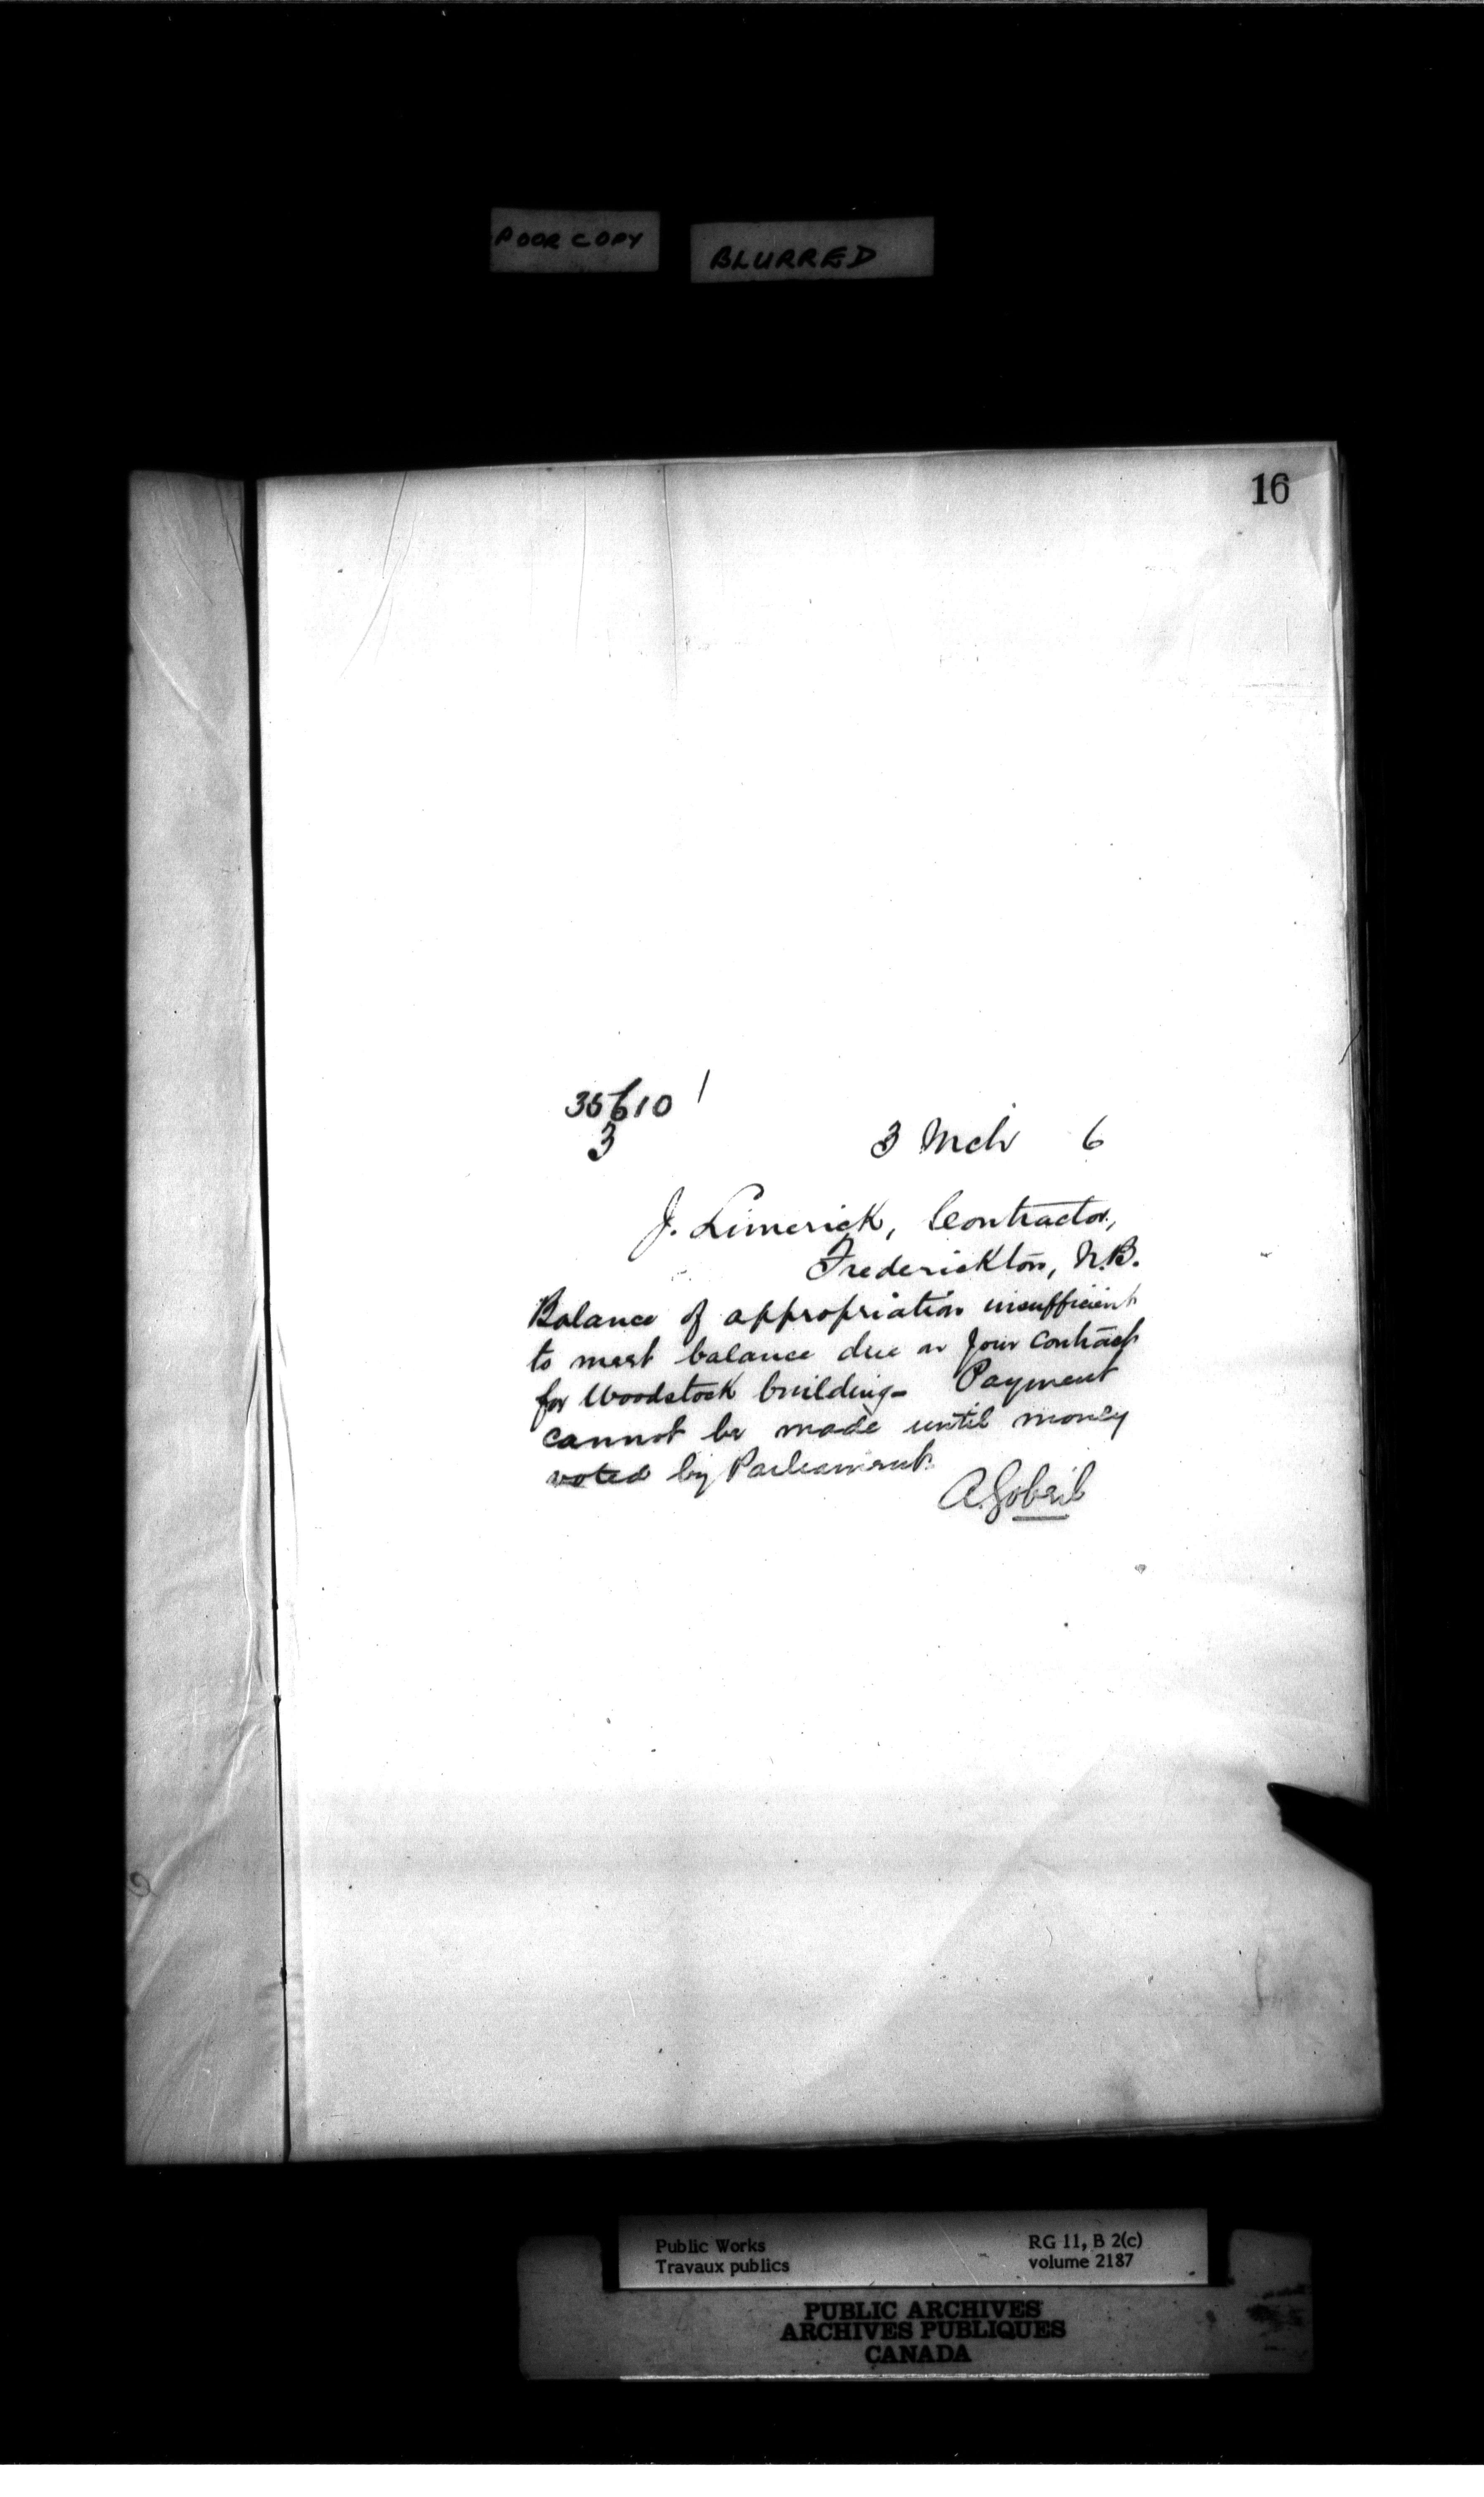 POOR COPY BLURRED
16
35610 1
3
3 Mch 6
J. Limerick, Contractor,
Frederickton, N.B.
Balance of appropriation insufficient
to meet balance due on your contract
for Woodstock building- Payment
cannot be made until money
voted by Parliament.
A. Gobeil
Public Works RG 11, B 2(c)
Travaux publics volume 2187
PUBLIC ARCHIVES
ARCHIVES PUBLIQUES
CANADA